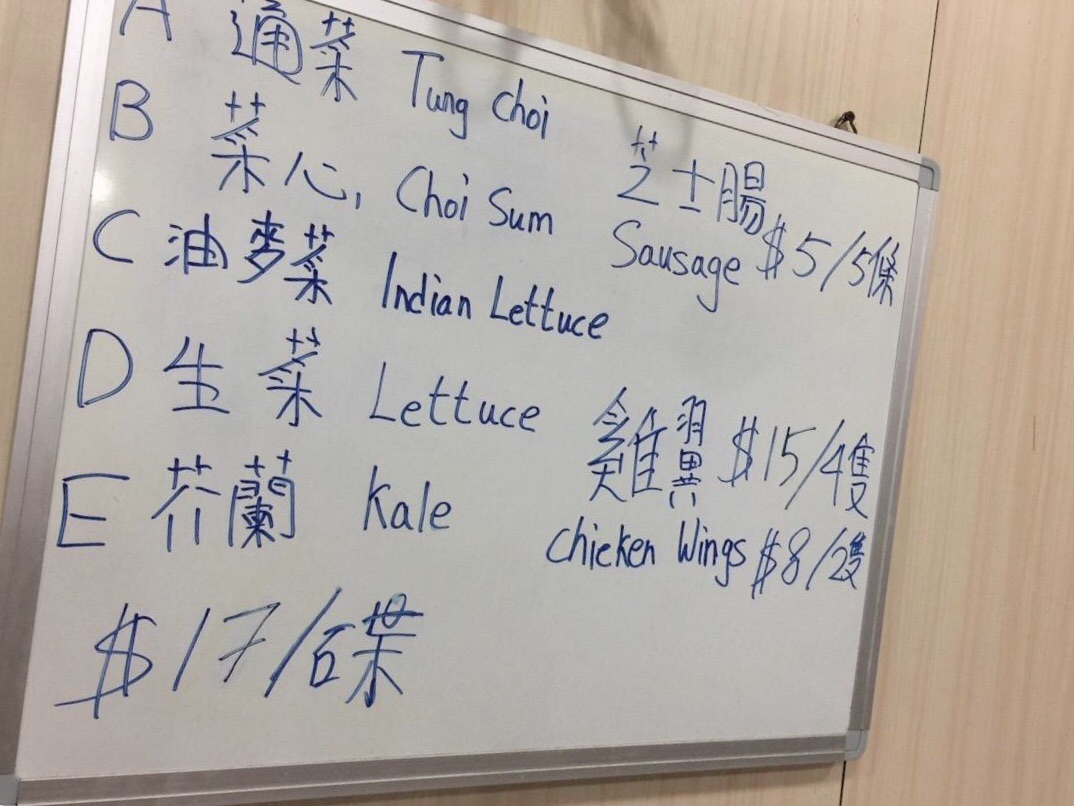 A 通菜 Tung Choi
B 菜心, Choi Sum
C 油麥菜 Indian Lettuce
D 生菜 Lettuce
E 芥蘭 Kale
$17/碟
芝士腸
Sausage $5/5條
雞翼 $15/4隻
Chicken Wings $8/2隻